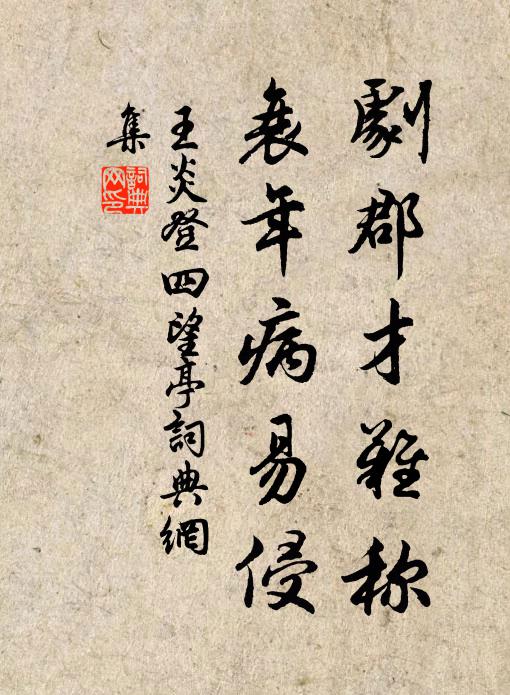 劇郡才難称
衰年病易侵
王炎登四望亭詞典網
集
詞典
网印